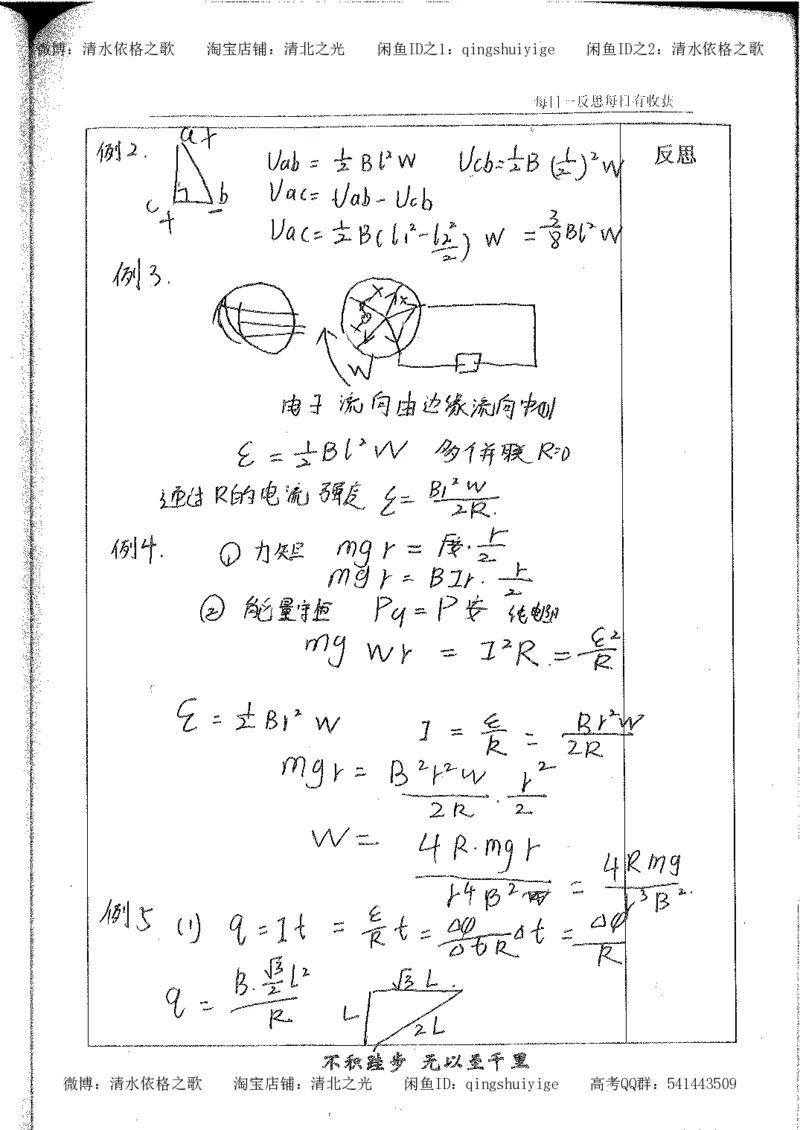 微博：清水依格之歌 淘宝店铺：清北之光 闲鱼ID之1：qingshuiyige 闲鱼ID之2：清水依格之歌
每日一反思每日有收获
反思
例2.
a+
c
+
b
-
Uab = ½Bl²W Ucb=½B(½)²W
Uac= Uab - Ucb
Uac=½B(l₁²-l₂²/2) W = 3/8 Bl²W
例3.
W
电子流向由边缘流向中侧
ε = ½Bl²W 多个并联 R=0
通过R的电流强度 ε= Bl²W/2R.
例4. ① 力矩 mg r = F安·r/2
mg r = BIr·r/2
② 能量守恒 P = P安 纯电阻
mg Wr = I²R = ε²/R
ε = ½Br²W I = ε/R = Br²W/2R
mgr = B²r²W/2R · r²/2
W = 4R·mgr/r⁴B² = 4Rmg/r³B².
例5 (1) q = It = ε/R t = Δφ/ΔtR Δt = Δφ/R
q = B·√3/2 L²/R
√3 L.
L
2L
不积跬步 无以至千里
微博：清水依格之歌 淘宝店铺：清北之光 闲鱼ID：qingshuiyige 高考QQ群：541443509